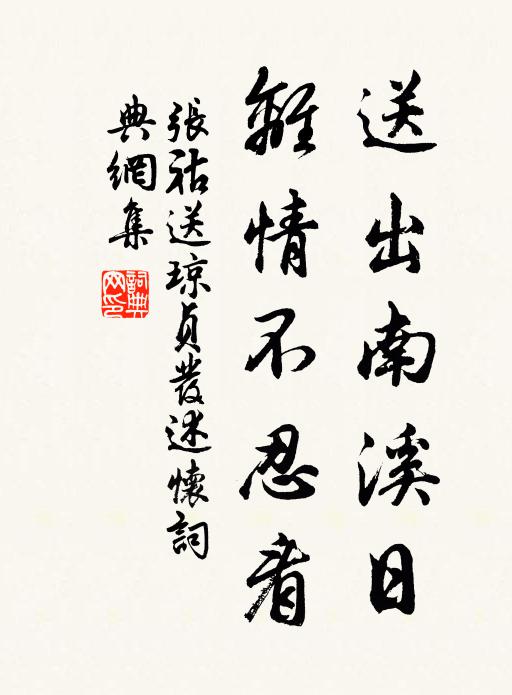 送出南溪日
離情不忍看
張祜送琼貞發述懷詞
典網集
詞典網印